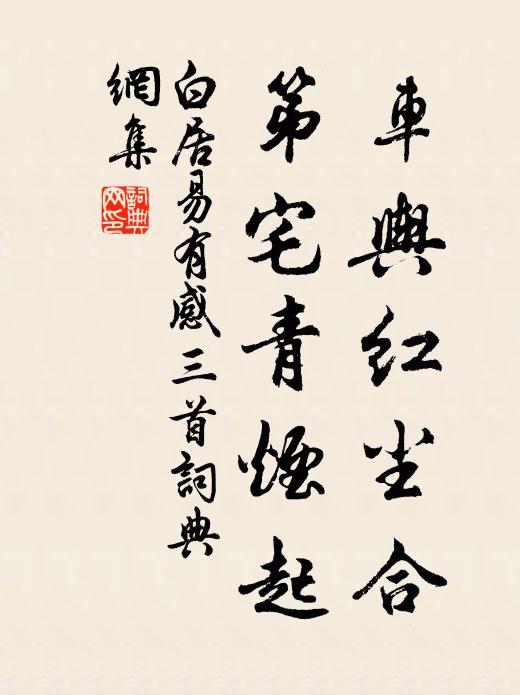 車輿紅尘合
第宅青煙起
白居易有感三首詞典
網集
詞典網印